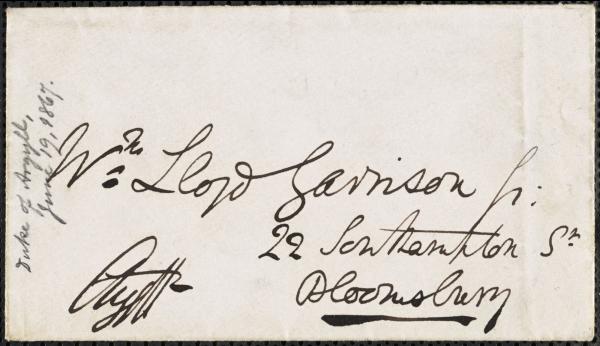 Duke of Argyll,
June 19, 1867.
Wm. Lloyd Garrison Jr:
22 Southampton St
Bloomsbury
Argyll